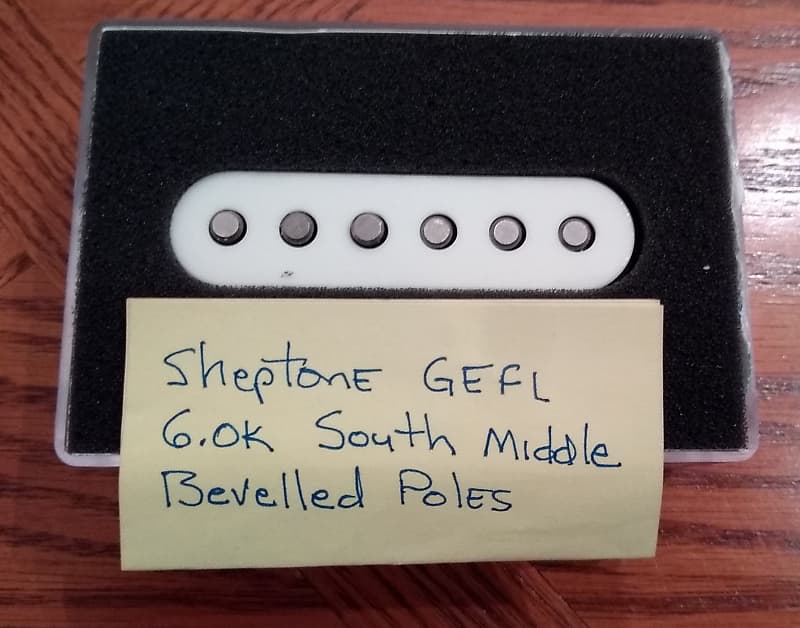 SheptonE GEFL
6.0K South Middle
Bevelled Poles